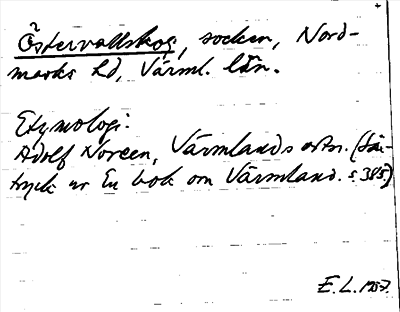 Östervallskog, socken, Nord-
marks hd, Värml. län.
Etymologi:
Adolf Noreen, Värmlands ortn. (Sär-
tryck ur En bok om Värmland. s 385)
E.L. 1957.